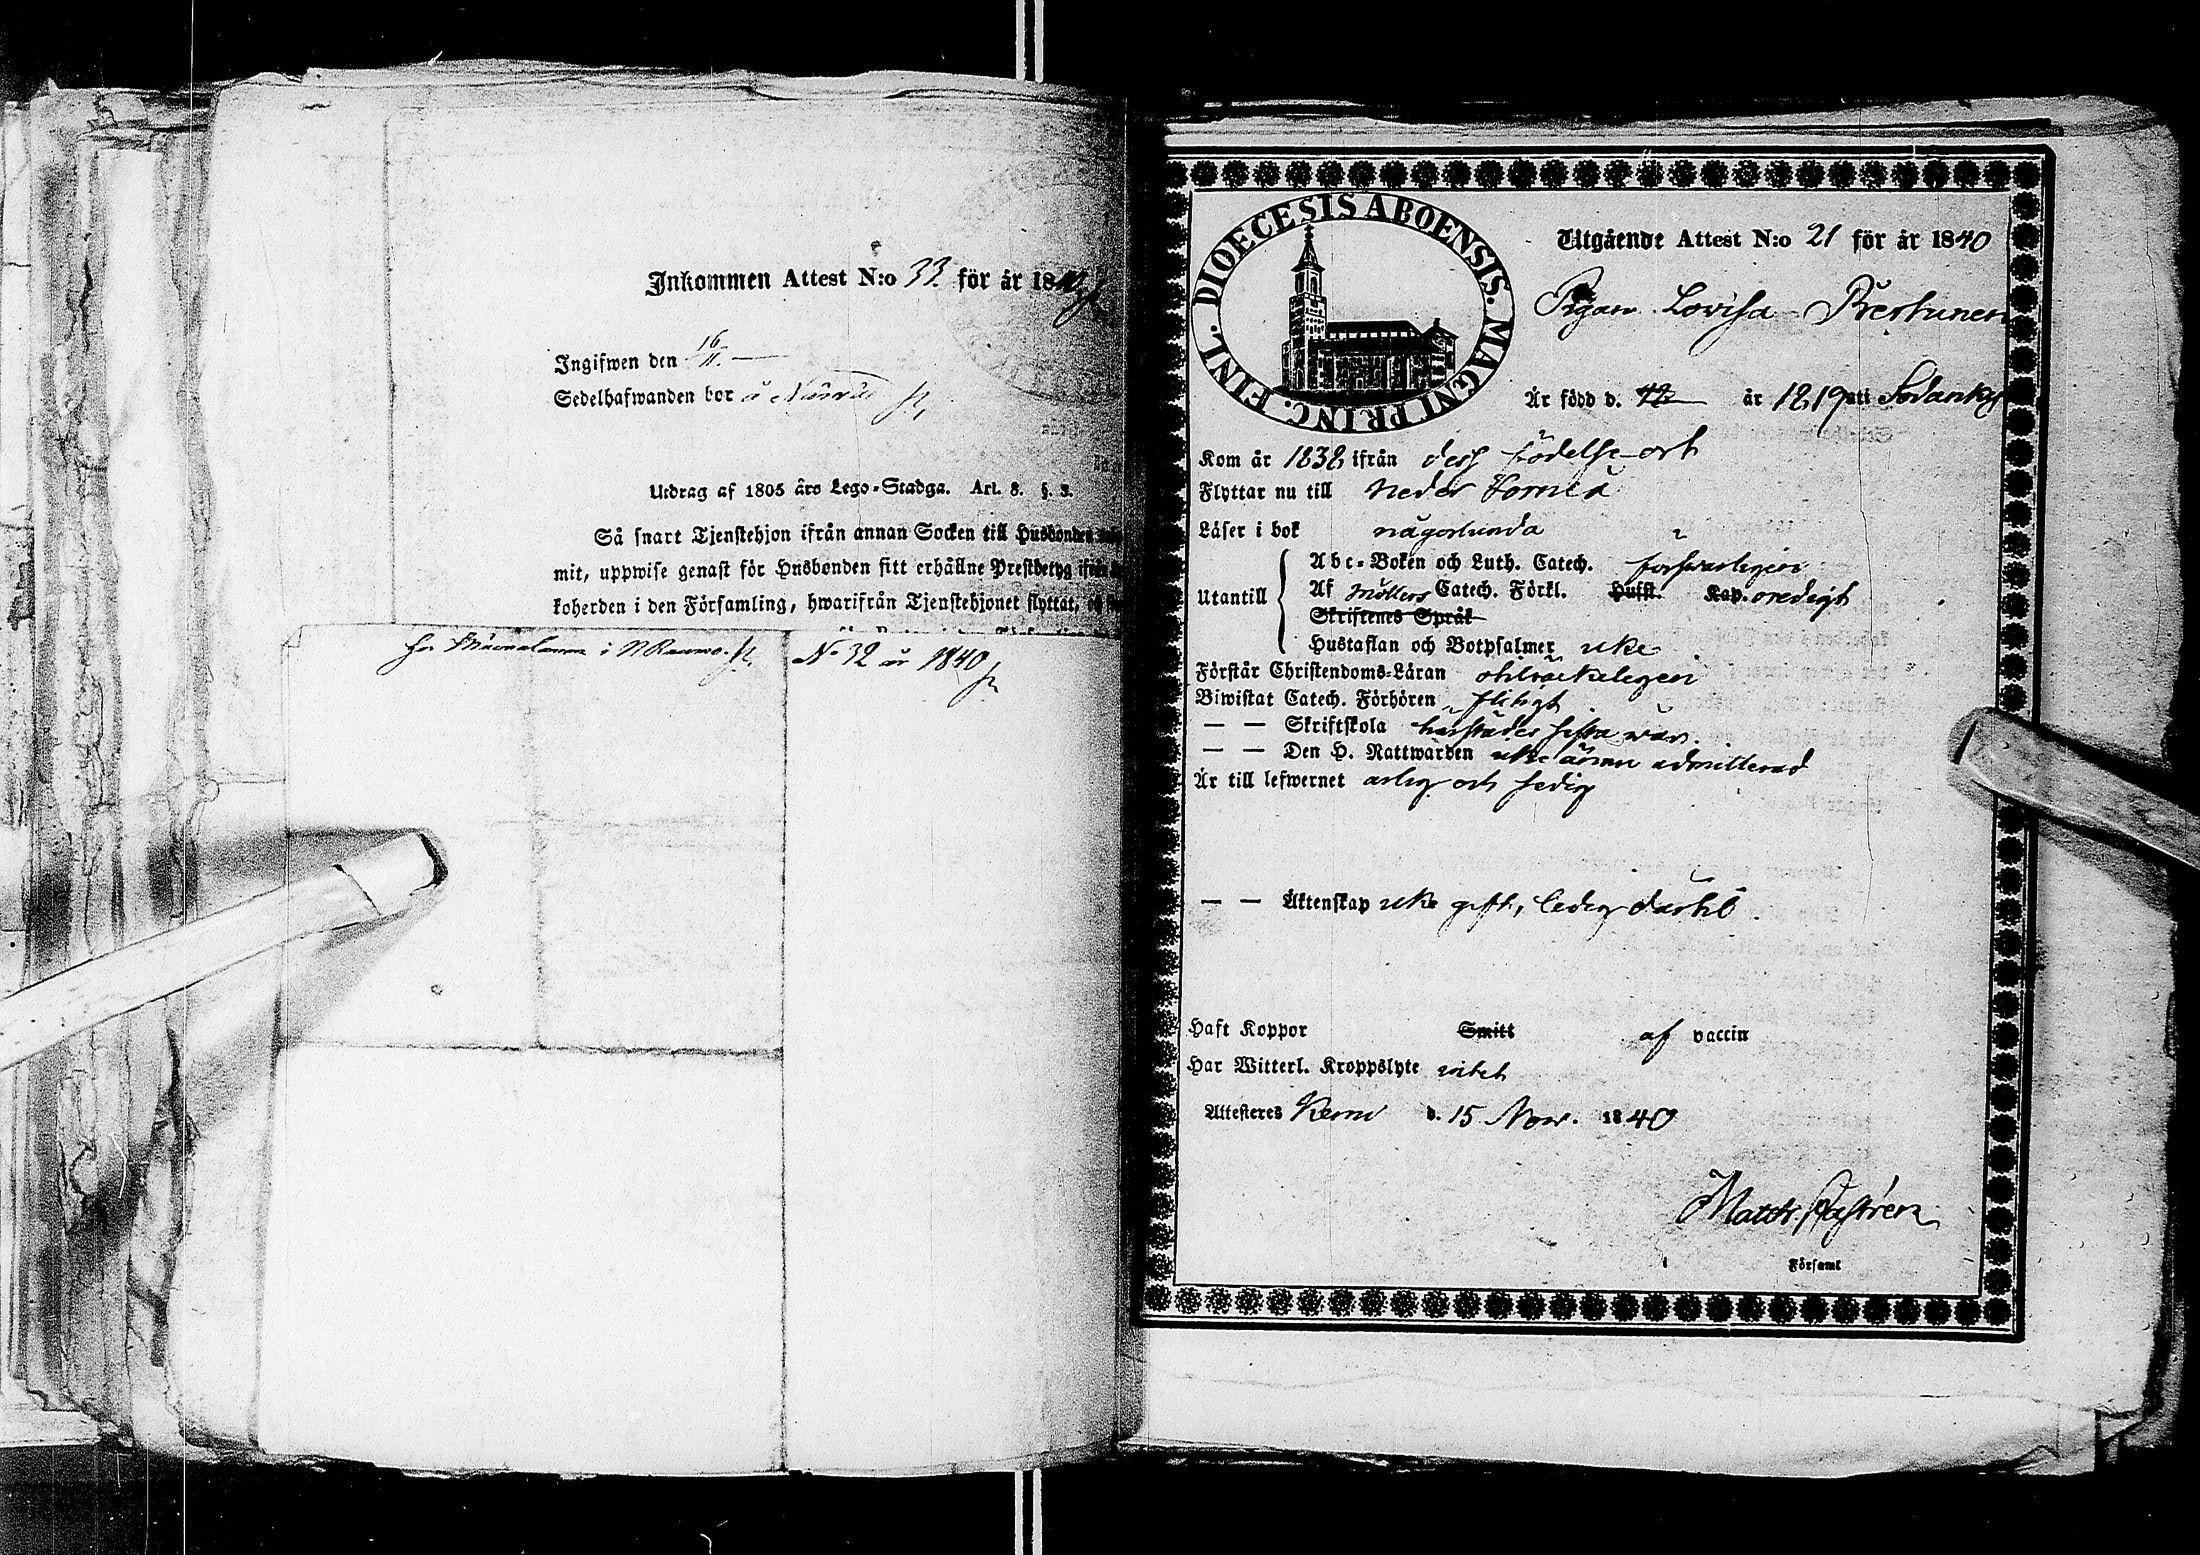 Inkommen Attest N:o 33. för år 1840
Ingifwen den 16/11.
Sedelhafwanden bor å
Utdrag af 1805 års Lego-Stadga. Art. 8. §. 3.
Så snart Tjenstehjon ifrån annan Socken till Husbonden
mit, uppwise genast för Husbonden sitt erhållne Prestbetyg ifrån
koherden i den Församling, hwarifrån Tjenstehjonet flyttat,
i N Raumo.
No 32 år 1840
DIOECESIS ABOENSIS. MAGNI PRINC. FINL.
Utgående Attest N:o 21 för år 1840
Pigan Lovisa
Är född d. år 1819 uti Sodankylä
Kom år 1838 ifrån dess födelse-ort
Flyttar nu till Neder Torneå
Läser i bok någorlunda
Abc-Boken och Luth. Catech. försvarligen
Utantill Af Möllers Catech. Förkl. Husft. Kap. oredigt
Skriftenes Språk
Hustaflan och Botpsalmer icke
Förstår Christendoms-Läran otilräckeligen
Biwistat Catech. Förhören flitigt
— — Skriftskola härstädes sista wår.
— — Den H. Nattwarden icke ännu admitterad
Är till lefwernet ärlig och sedig
— — Äktenskap icke gift, ledig därtil.
Haft Koppor Smitt af vaccin
Har Witterl. Kroppslyte intet
Attesteres Kemi d. 15 Nov. 1840
Matth. Castrén
Församl